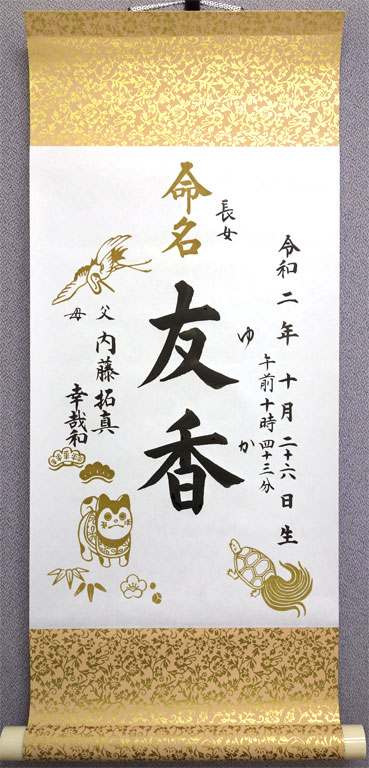 令和二年十月二十六日生
午前十時四十三分
ゆか
長女
命名
友香
父 内藤拓真
母 幸哉和